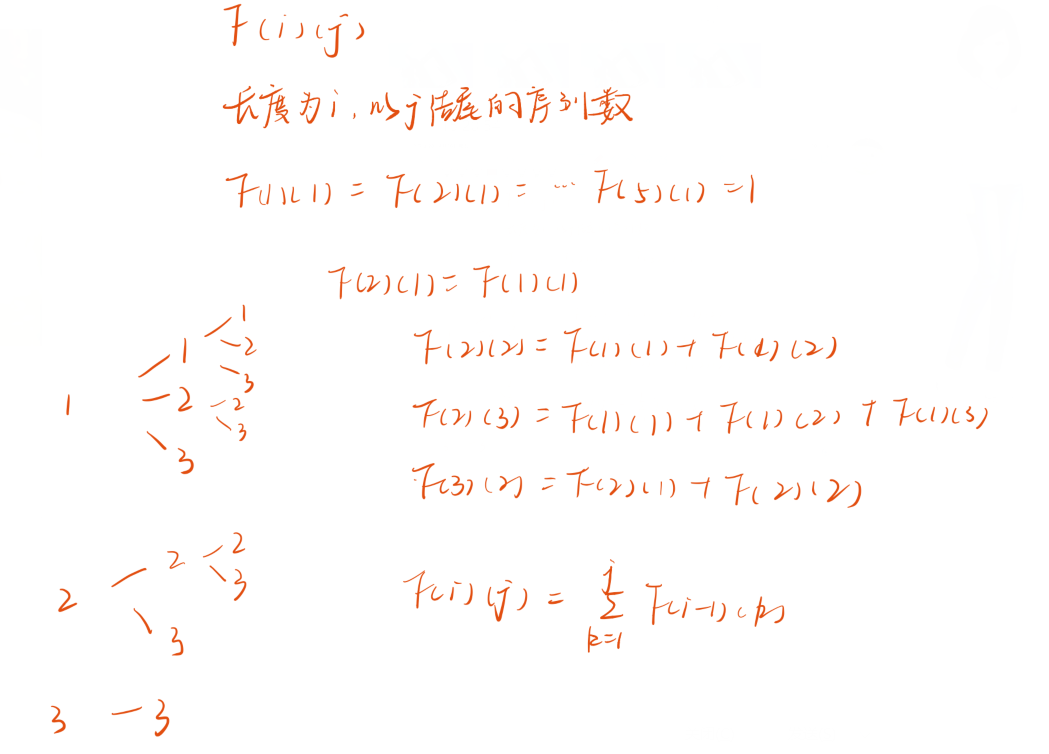 F(i)(j)
长度为i,以j结尾的序列数
F(1)(1) = F(2)(1) = … F(5)(1) = 1
F(2)(1) = F(1)(1)
F(2)(2) = F(1)(1) + F(1)(2)
F(2)(3) = F(1)(1) + F(1)(2) + F(1)(3)
F(3)(2) = F(2)(1) + F(2)(2)
F(i)(j) = j∑k=1 F(i-1)(k)
1
1
2
3
1
2
3
2
3
2
2
3
2
3
3 — 3